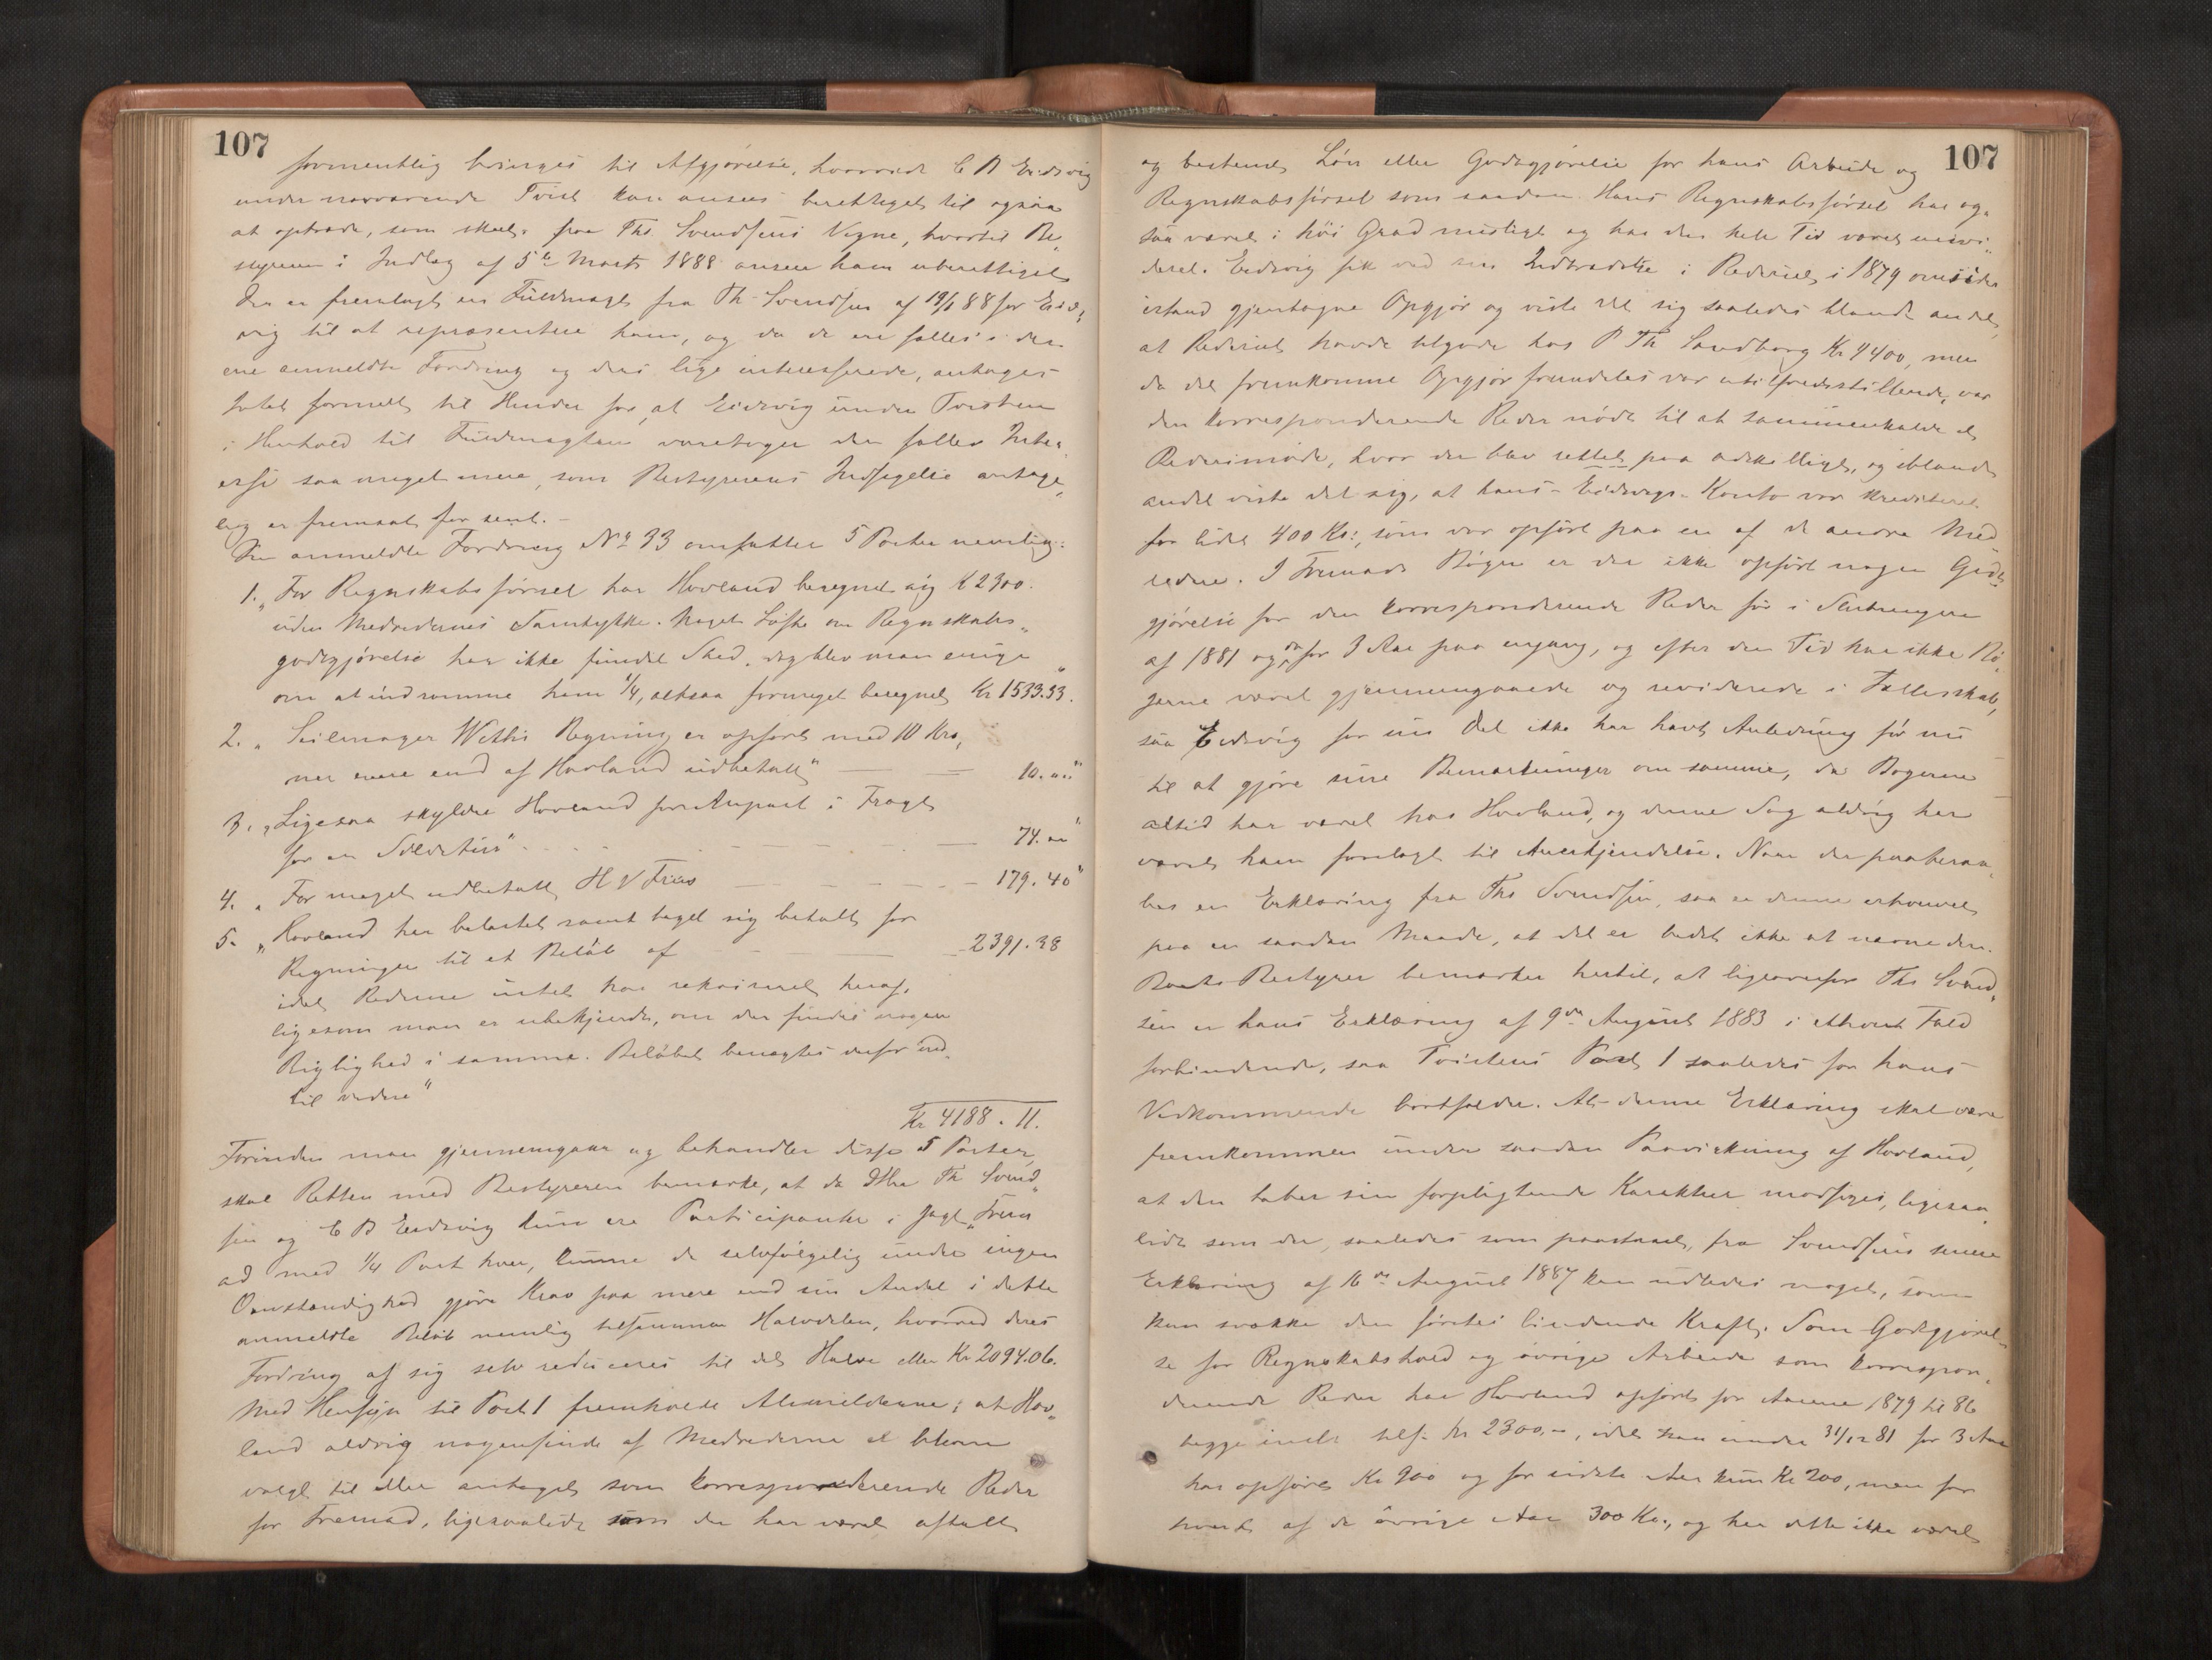 107
formentlig bringes til Afgjørelse, hvorvidt C B Eidsvig
under nærværende Tvist kan ansees berettiget til ogsaa
at optræde, som skeet, paa Ths Svendsens Vegne, hvortil Be„
styreren i Indlæg af 5te Marts 1888 anser ham uberettiget
Der er fremlagt en Fuldmagt fra Th Svendsen af 19/1 88 for Eids„
vig til at repræsentere ham, og da de ere fælles i den
ene anmeldte Fordring og deri lige interesserede, antages
Intet formelt til Hinder for, at Eidsvig under Tvisten
i Henhold til Fuldmagten varetager den fælles Inter„
esse saa meget mere, som Bestyrerens Indsigelse antage„
lig er fremsat for sent.-
Den anmeldte Fordring No 33 omfatter 5 Poster nemlig:
1. „For Regnskabsførsel har Hovland beregnet sig K 2300.
uden Medredernes Samtykke. Noget Løfte om Regnskabs„
godtgjørelse har ikke fundet Sted, dog blev man enige
om at indrømme ham 1/4, altsaa formeget beregnet Kr 1533.33.
2. „Seilmager Wittes Regning er opført med 10 Kro,
ner mere end af Hovland udbetalt" — — 10.00"
3. „Ligesaa skylder Hovland for Anpart i Fragt
for en Sildetur" - - - — 74.00"
4. „For meget udbetalt H V Friis — - - - 179.40"
5. „Hovland har belastet samt taget sig betalt for
Regninger til et Beløb af — — 2391.38
idet Rederne intet har rekvireret heraf,
ligesom man er ubekjendt, om der findes nogen
Rigtighed i samme. Beløbet benægtes derfor ind„
til videre"
Kr 4188.11.
Forinden man gjennemgaar og behandler disse 5 Poster,
skal Retten med Bestyreren bemærke, at da DHrr Th Svend„
sen og C B Eidsvig kun ere Participanter i Jagt „Frem
ad med 1/4 Part hver, kunne de selvfølgelig under ingen
Omstændighed gjøre Krav paa mere end sin Andel i dette
anmeldte Beløb nemlig tilsammen Halvdelen, hvorved deres
Fordring af sig selv reduceres til det Halve eller Kr 2094.06.
Med Hensyn til Post 1 fremholde Anmelderne: at Hov„
land aldrig nogensinde af Medrederne er bleven
valgt til eller antaget som korresponderende Reder
for Fremad, ligesaalidt som der har været aftalt
107
og bestemt Løn eller Godtgjørelse for hans Arbeide og
Regnskabsførsel som saadan. Hans Regnskabsførsel har og„
saa været i høi Grad misligt og har den hele Tid været urevi„
deret. Eidsvig fik ved sin Indtrædelse i Rederiet i 1879 omsider
istand gjentagne Opgjør og viste det sig saaledes blandt andet,
at Rederiet havde tilgode hos P Th Sandborg Kr 4400, men
da det fremkomne Opgjør fremdeles var utilfredsstillende, var
den korresponderende Reder nødt til at sammenkalde et
Rederimøde, hvor der blev rettet paa adskilligt, og iblandt
andet viste det sig, at hans - Eidsvigs - Konto var krediteret
for lidet 400 Kr:, som var opført paa en af de andre Med„
redere. I Fremads Bøger er der ikke opført nogen Godt„
gjørelse for den korresponderende Reder før i Slutningen
af 1881 og da for 3 Aar paa engang, og efter den Tid har ikke Bø„
gerne været gjennemgaaede og reviderede i Fællesskab,
saa Eidsvig for sin Del ikke har havt Anledning før nu
til at gjøre sine Bemærkninger om samme, da Bøgerne
altid har været hos Hovland, og denne Sag aldrig har
været ham forelagt til Anerkjendelse. Naar der paaberaa„
bes en Erklæring fra Ths Svendsen, saa er denne erhvervet
paa en saadan Maade, at det er bedst ikke at nævne den.
Boets Bestyrer bemærker hertil, at ligeoverfor Ths Svend„
sen er hans Erklæring af 9de August 1883 i ethvert Fald
forbindende, saa Tvistens Post 1 saaledes for hans
Vedkommende bortfalder. At denne Erklæring skal være
fremkommen under saadan Paavirkning af Hovland,
at den taber sin forpligtende Karakter modsiges, ligesaa„
lidt som der, saaledes som paastaaet, fra Svendsens senere
Erklæring af 16de August 1887 kan udledes noget, som
kan svække den førstes bindende Kraft. Som Godtgjørel„
se for Regnskabshold og øvrige Arbeide som korrespon„
derende Reder har Hovland opført for Aarene 1879 til 86
begge incl. tils. Kr 2300.-, idet han under 31/12 81 for 3 Aar
har opført Kr 900 og for sidste Aar kun Kr 200, men for
hvert af de øvrige Aar 300 Kr., og har dette ikke været